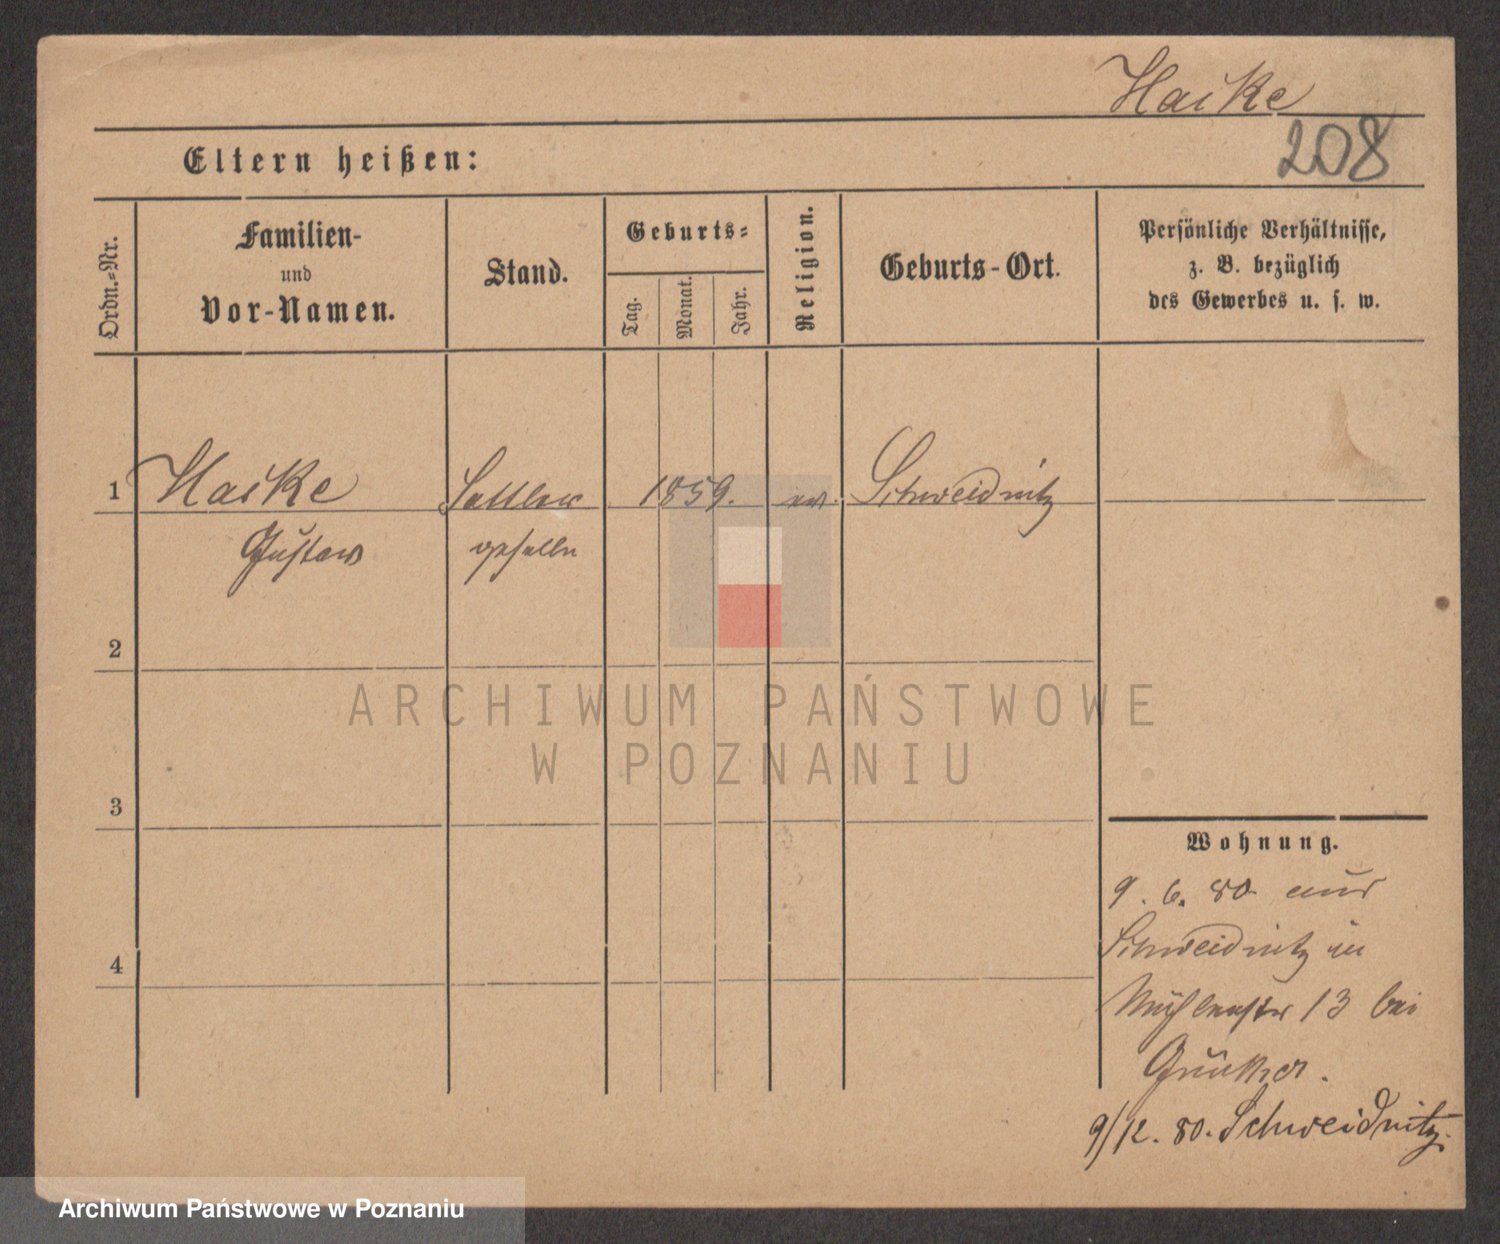 Haike
208
Eltern heißen:
Ordn.-Nr.
Familien-
und
Vor-Namen.
Stand.
Geburts-
Tag.
Monat.
Jahr.
Religion.
Geburts-Ort.
Persönliche Verhältnisse,
z. B. bezüglich
des Gewerbes u. s. w.
1 Haike Sattler 1859. ev. Schweidnitz
Gustav geselle
2
3
4
ARCHIWUM PAŃSTWOWE
W POZNANIU
Wohnung.
9. 6. 80 aus
Schweidnitz in
Mühlenstr 13 bei
9/12. 80. Schweidnitz.
Archiwum Państwowe w Poznaniu